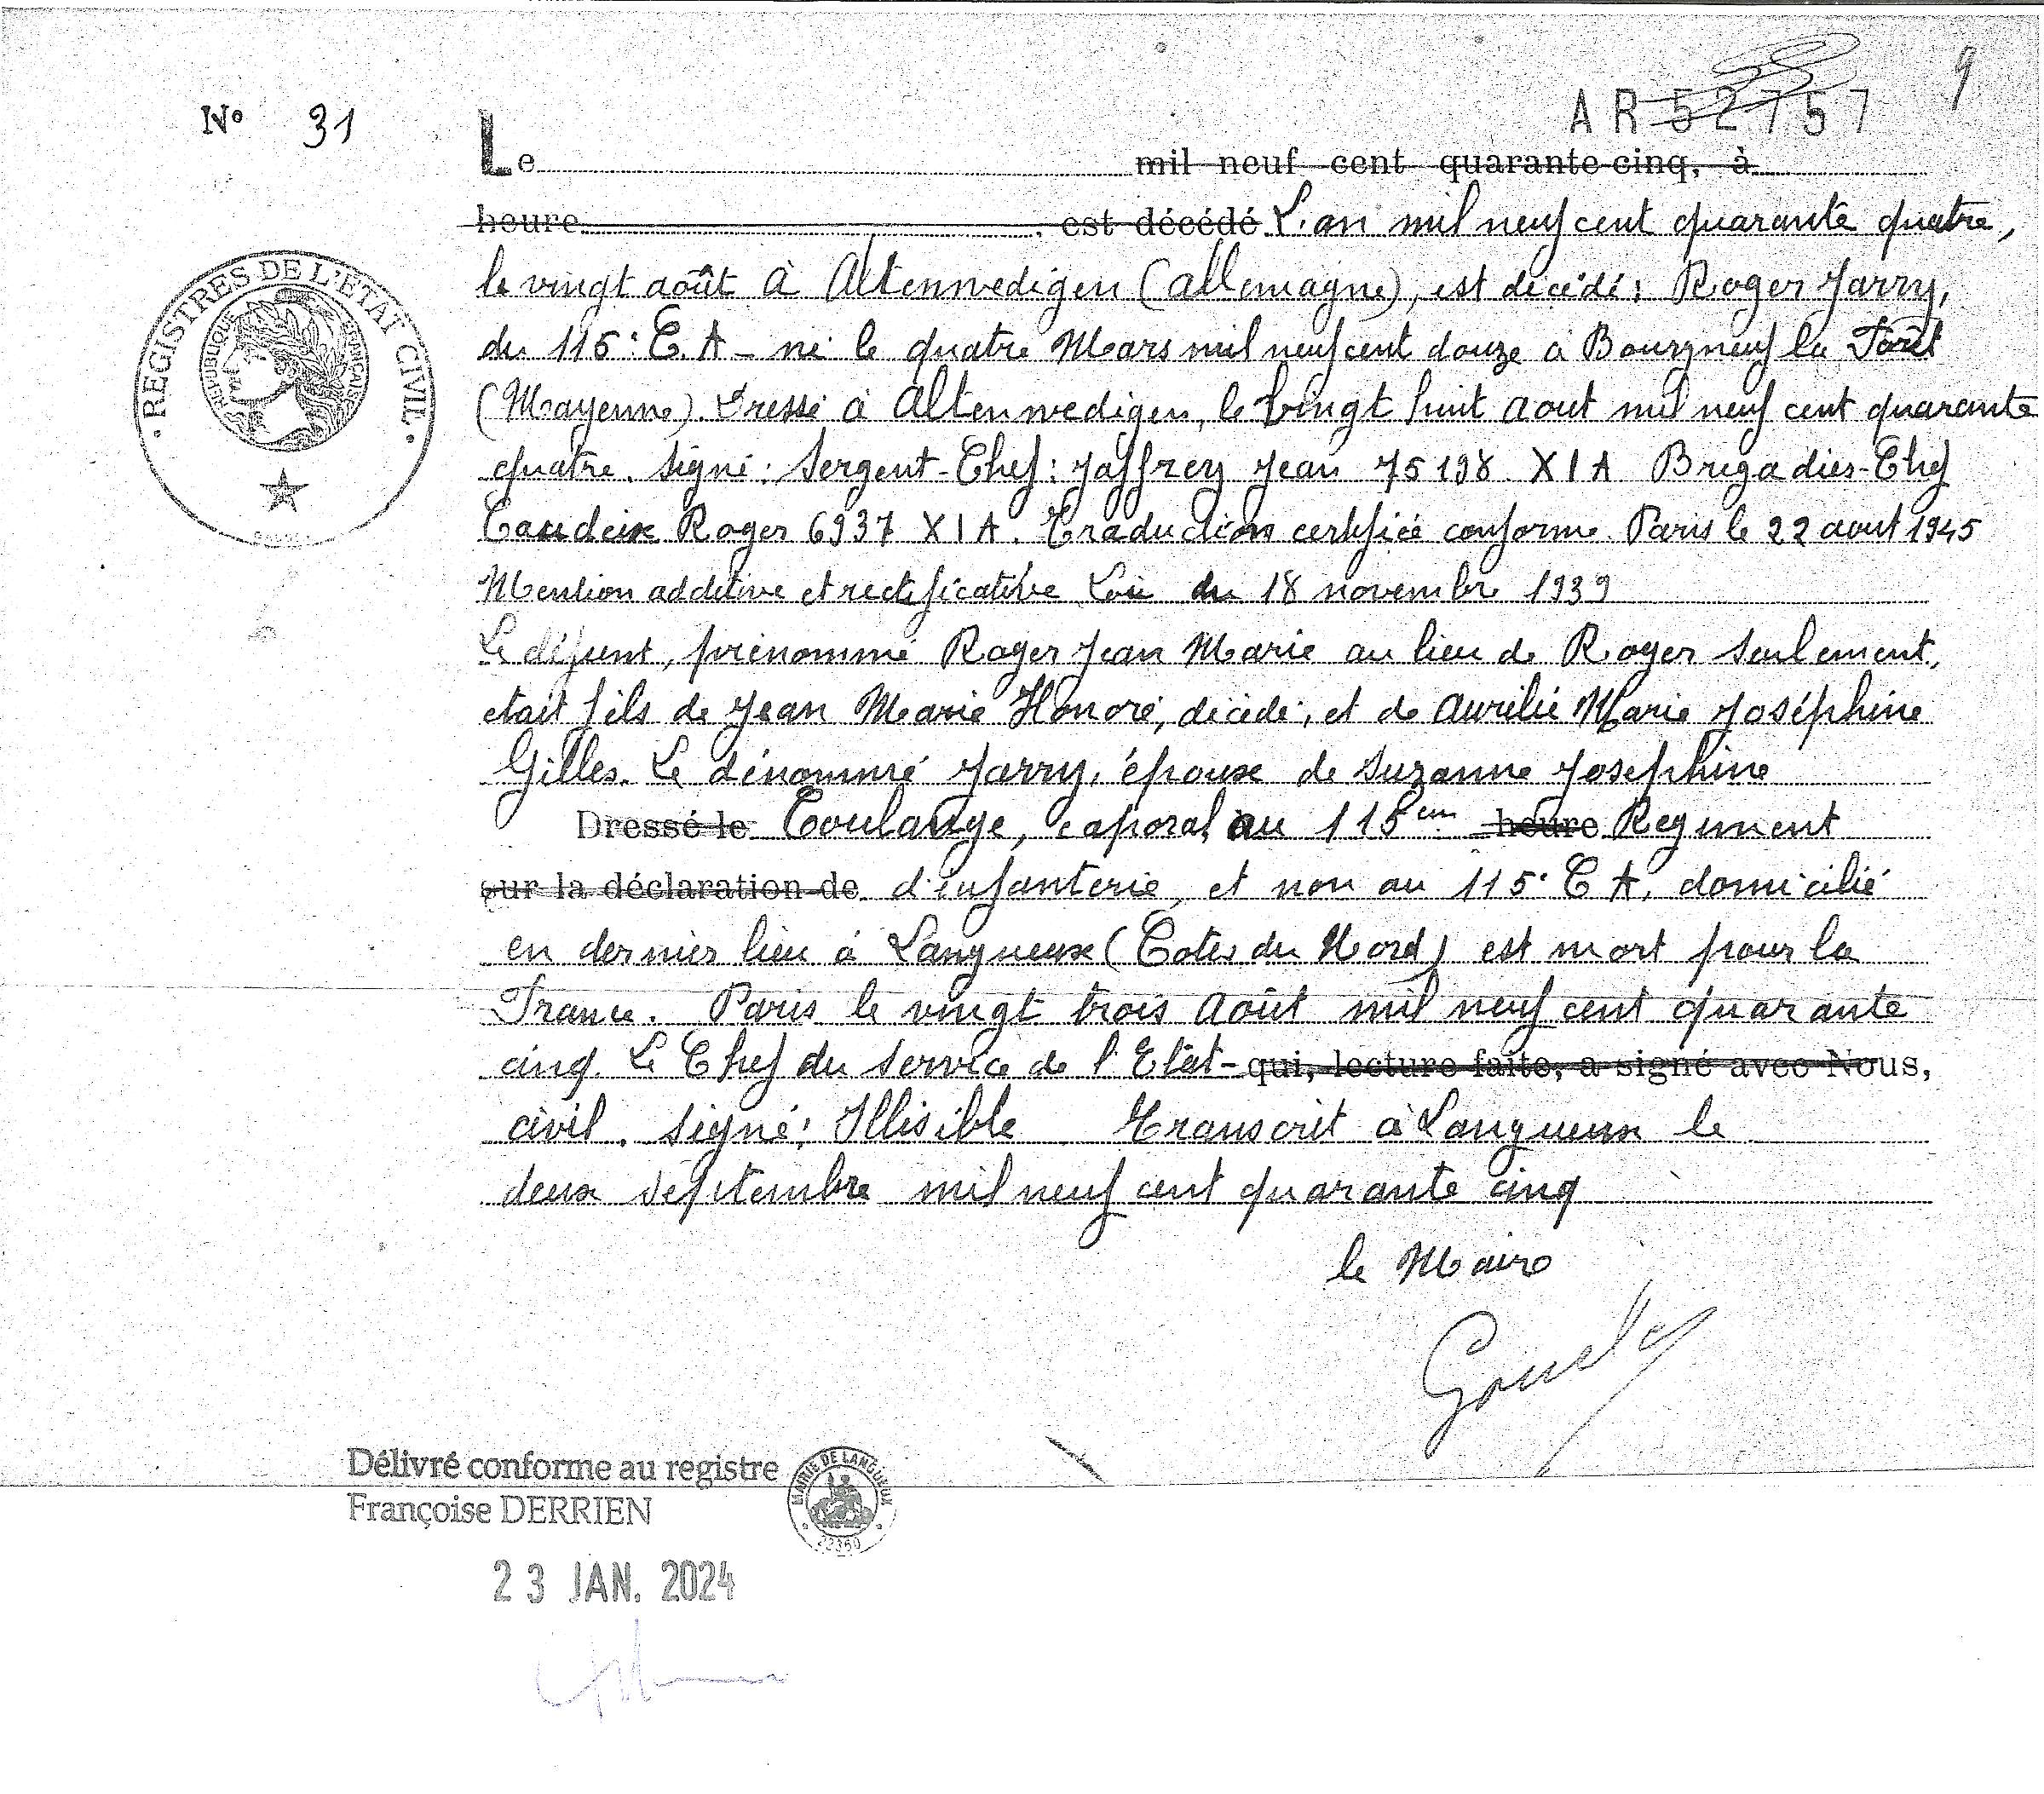 AR 52757
9
N° 31
Le mil neuf cent quarante-cinq, à
heure , est décédé L'an mil neuf cent quarante quatre,
le vingt août à Altenwedigen (Allemagne), est décédé : Roger Jarry,
du 115e C.A - né le quatre Mars mil neuf cent douze à Bourgneuf la Forêt
(Mayenne). Dressé à Altenwedigen, le vingt huit aout mil neuf cent quarante
quatre. Signé : Sergent-Chef : Jaffrey Jean 75198 XIA Brigadier-Chef
Caudeix Roger 6937 XIA. Traduction certifiée conforme. Paris le 22 aout 1945
Mention additive et rectificative Loi du 18 novembre 1939
Le défunt, prénommé Roger Jean Marie au lieu de Roger seulement,
était fils de Jean Marie Honoré, décédé, et de Aurélie Marie Joséphine
Gilles. Le dénommé Jarry, époux de Suzanne Josephine
Dressé le Coulange, caporal au 115em heure Regiment
sur la déclaration de d'infanterie, et non au 115e C A, domicilié
en dernier lieu à Langueux (Cotes du Nord) est mort pour la
France. Paris le vingt trois Août mil neuf cent quarante
cinq. Le Chef du Service de l'Etat- qui, lecture faite, a signé avec Nous,
civil. Signé : Illisible. Transcrit à Langueux le
deux septembre mil neuf cent quarante cinq
le Maire
REGISTRES DE L'ÉTAT CIVIL
REPUBLIQUE FRANÇAISE
Délivré conforme au registre
Françoise DERRIEN
MAIRIE DE LANGUEUX
22360
23 JAN. 2024